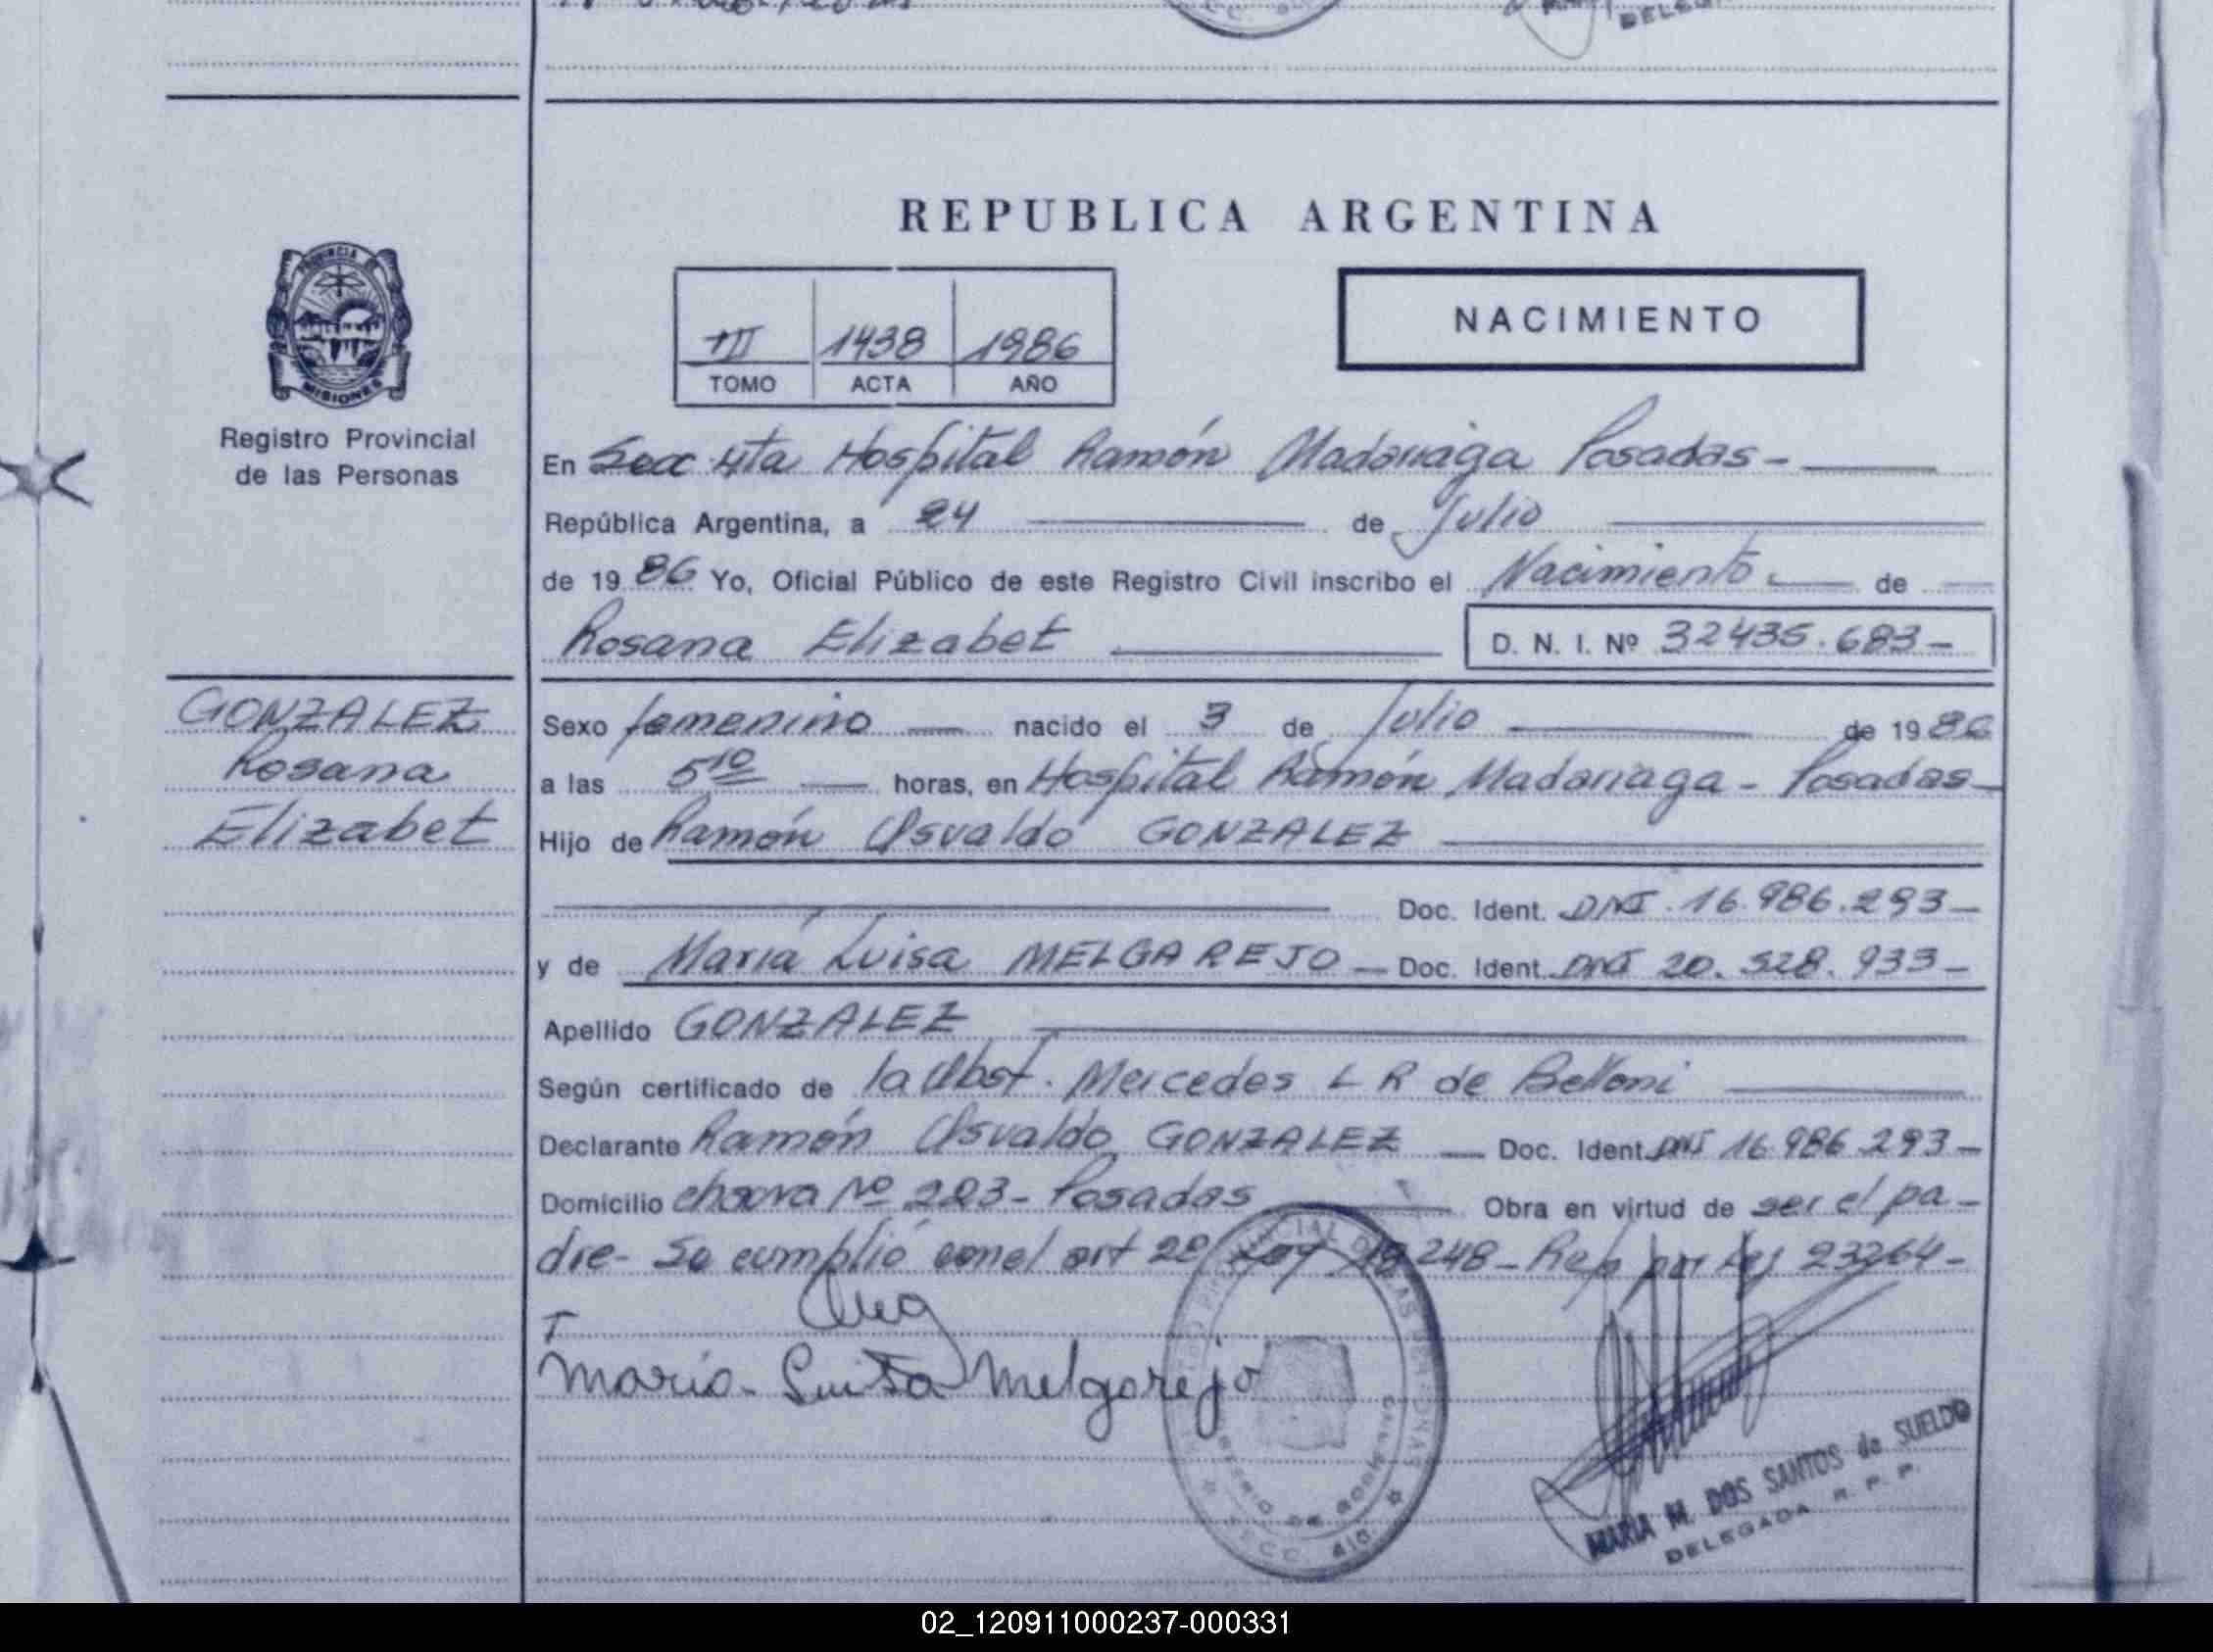 REPUBLICA ARGENTINA
PROVINCIA DE
MISIONES
Registro Provincial
de las Personas
III 1438 1986
TOMO ACTA AÑO
NACIMIENTO
En Secc 4ta Hospital Ramón Madariaga Posadas -
República Argentina, a 24 de Julio
de 1986 Yo, Oficial Público de este Registro Civil inscribo el Nacimiento de
Rosana Elizabet D. N. I. Nº 32435.683 -
GONZALEZ
Rosana
Elizabet
Sexo femenino nacido el 3 de Julio de 1986
a las 5 10 horas, en Hospital Ramón Madariaga - Posadas -
Hijo de Ramón Osvaldo GONZALEZ
Doc. Ident. DNI. 16.986.293 -
y de María Luisa MELGAREJO - Doc. Ident. DNI 20.528.933 -
Apellido GONZALEZ
Según certificado de la Obst. Mercedes L R de Belloni
Declarante Ramón Osvaldo GONZALEZ - Doc. Ident. DNI 16.986.293 -
Domicilio chacra Nº 223 - Posadas Obra en virtud de ser el pa-
dre - Se cumplió con el art 2º Ley 18248 - Rep por Ley 23264 -
María Luisa Melgarejo
MARIA M. DOS SANTOS de SUELDO
DELEGADA R. P. P.
SECC. 4ta.
02_120911000237-000331